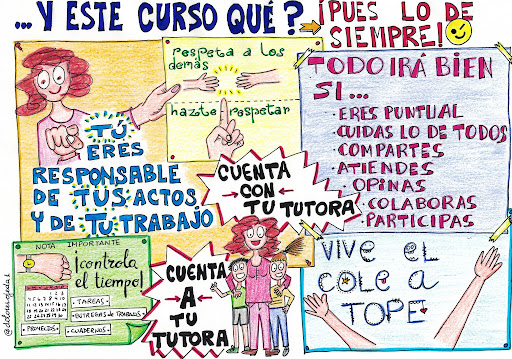 ...Y ESTE CURSO QUÉ? → ¡PUES LO DE
SIEMPRE!
respeta a los
demás
hazte respetar
TÚ
ERES
RESPONSABLE
DE TUS ACTOS
Y DE TU TRABAJO
TODO IRÁ BIEN
SI...
· ERES PUNTUAL
· CUIDAS LO DE TODOS
· COMPARTES
· ATIENDES
· OPINAS
· COLABORAS
· PARTICIPAS
CUENTA
CON
TU TUTORA
NOTA IMPORTANTE
¡controla
el tiempo!
- TAREAS
- ENTREGAS DE TRABAJOS
- PROYECTOS
- CUADERNOS
CUENTA
A
TU
TUTORA
VIVE EL
COLE A
TOPE